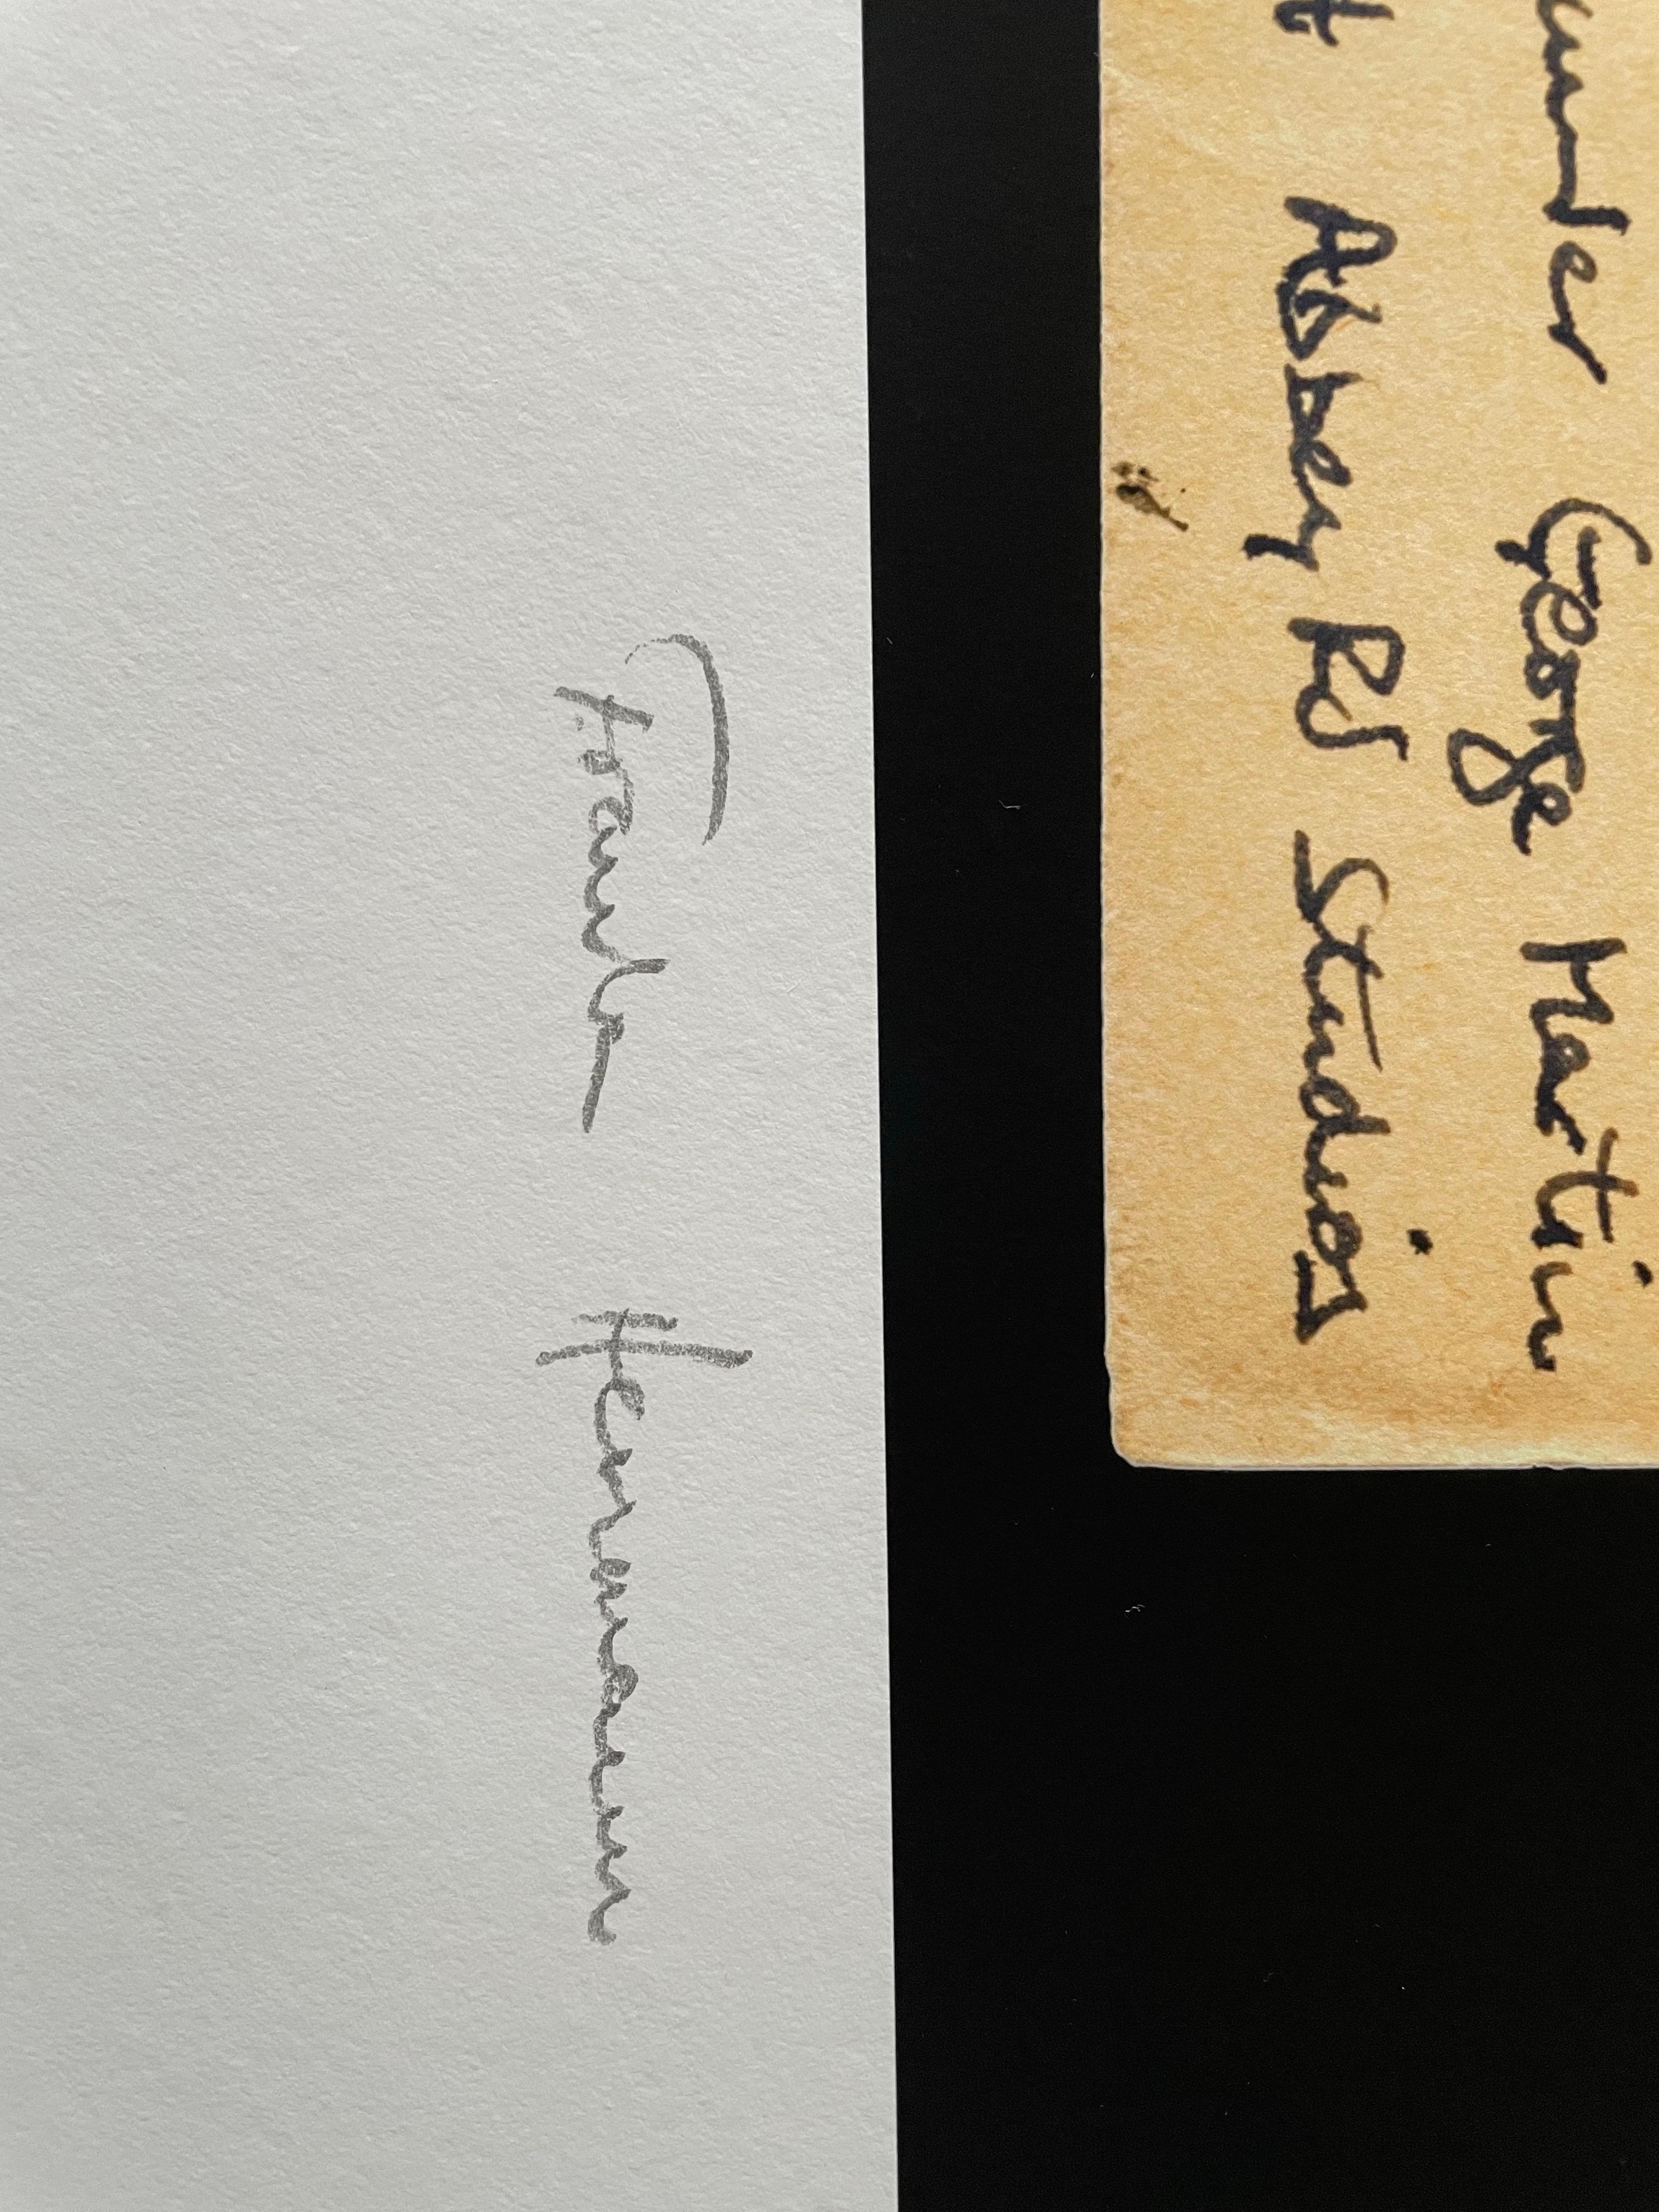 George Martin
Abbey Rd Studios
Frank Herrmann